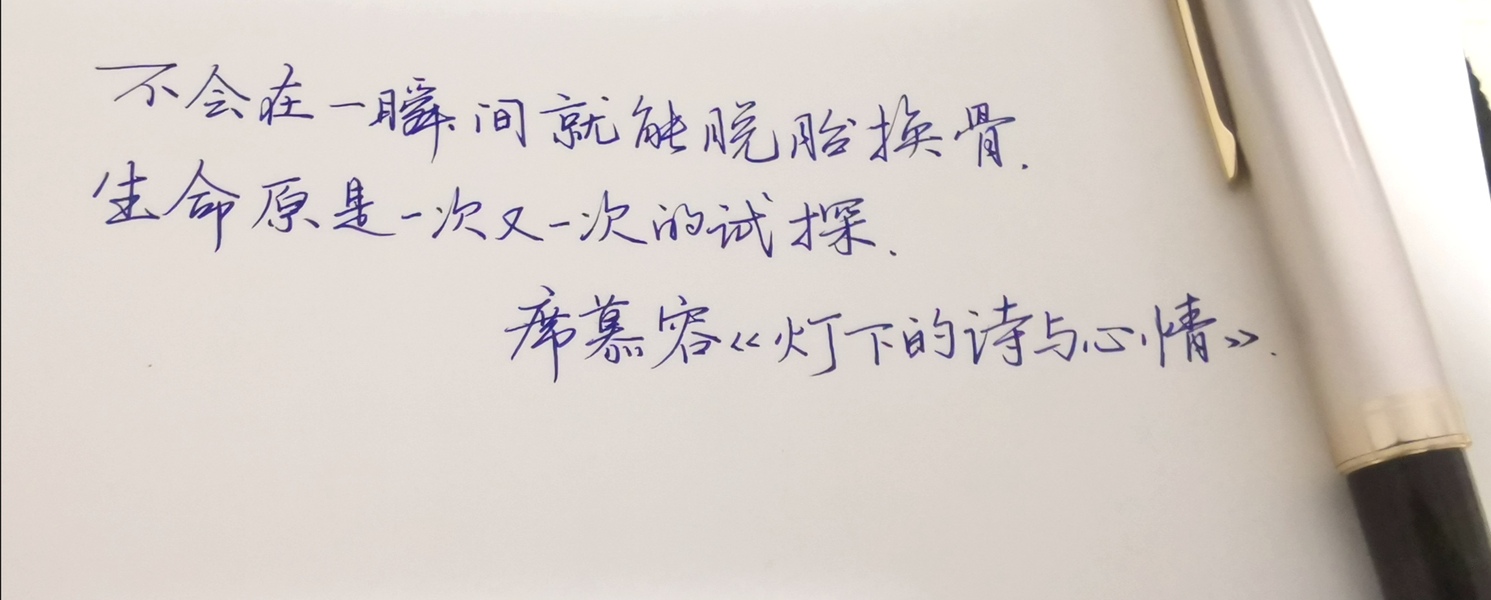 不会在一瞬间就能脱胎换骨.
生命原是一次又一次的试探.
席慕容《灯下的诗与心情》.